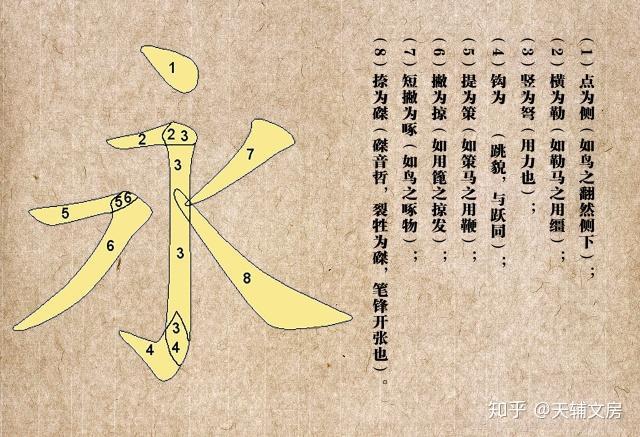 (1)点为侧(如鸟之翻然侧下);
(2)横为勒(如勒马之用缰);
(3)竖为弩(用力也);
(4)钩为 (跳貌,与跃同);
(5)提为策(如策马之用鞭);
(6)撇为掠(如用篦之掠发);
(7)短撇为啄(如鸟之啄物);
(8)捺为磔(磔音哲,裂牲为磔,笔锋开张也)。
1
2 2 3
3
7
5 5 6
6
3
8
3
4 4
知乎 @天辅文房